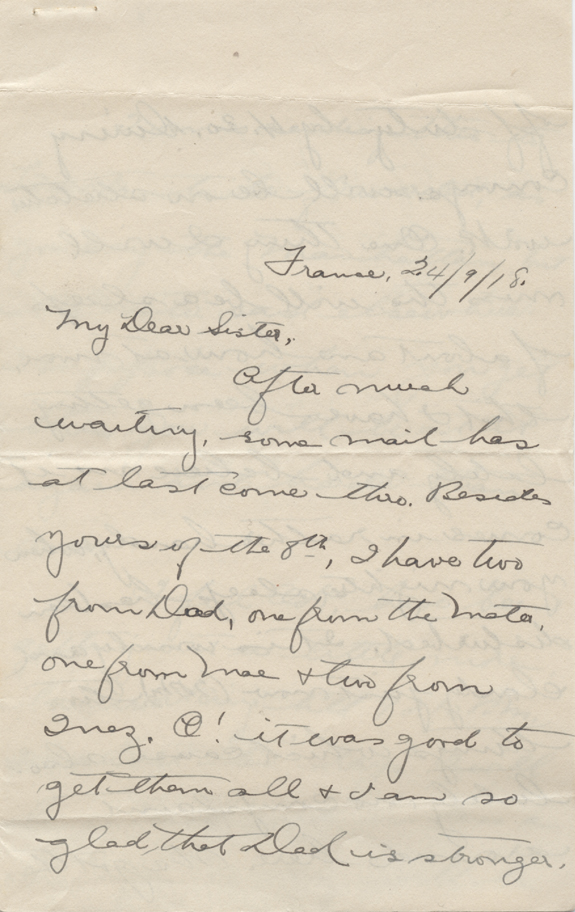 France, 24/9/18.
My Dear Sister,
After much
waiting, some mail has
at last come thro. Besides
yours of the 8th, I have two
from Dad, one from the Mater,
one from Mae & two from
Inez. O! it was good to
get them all & I am so
glad that Dad is stronger.